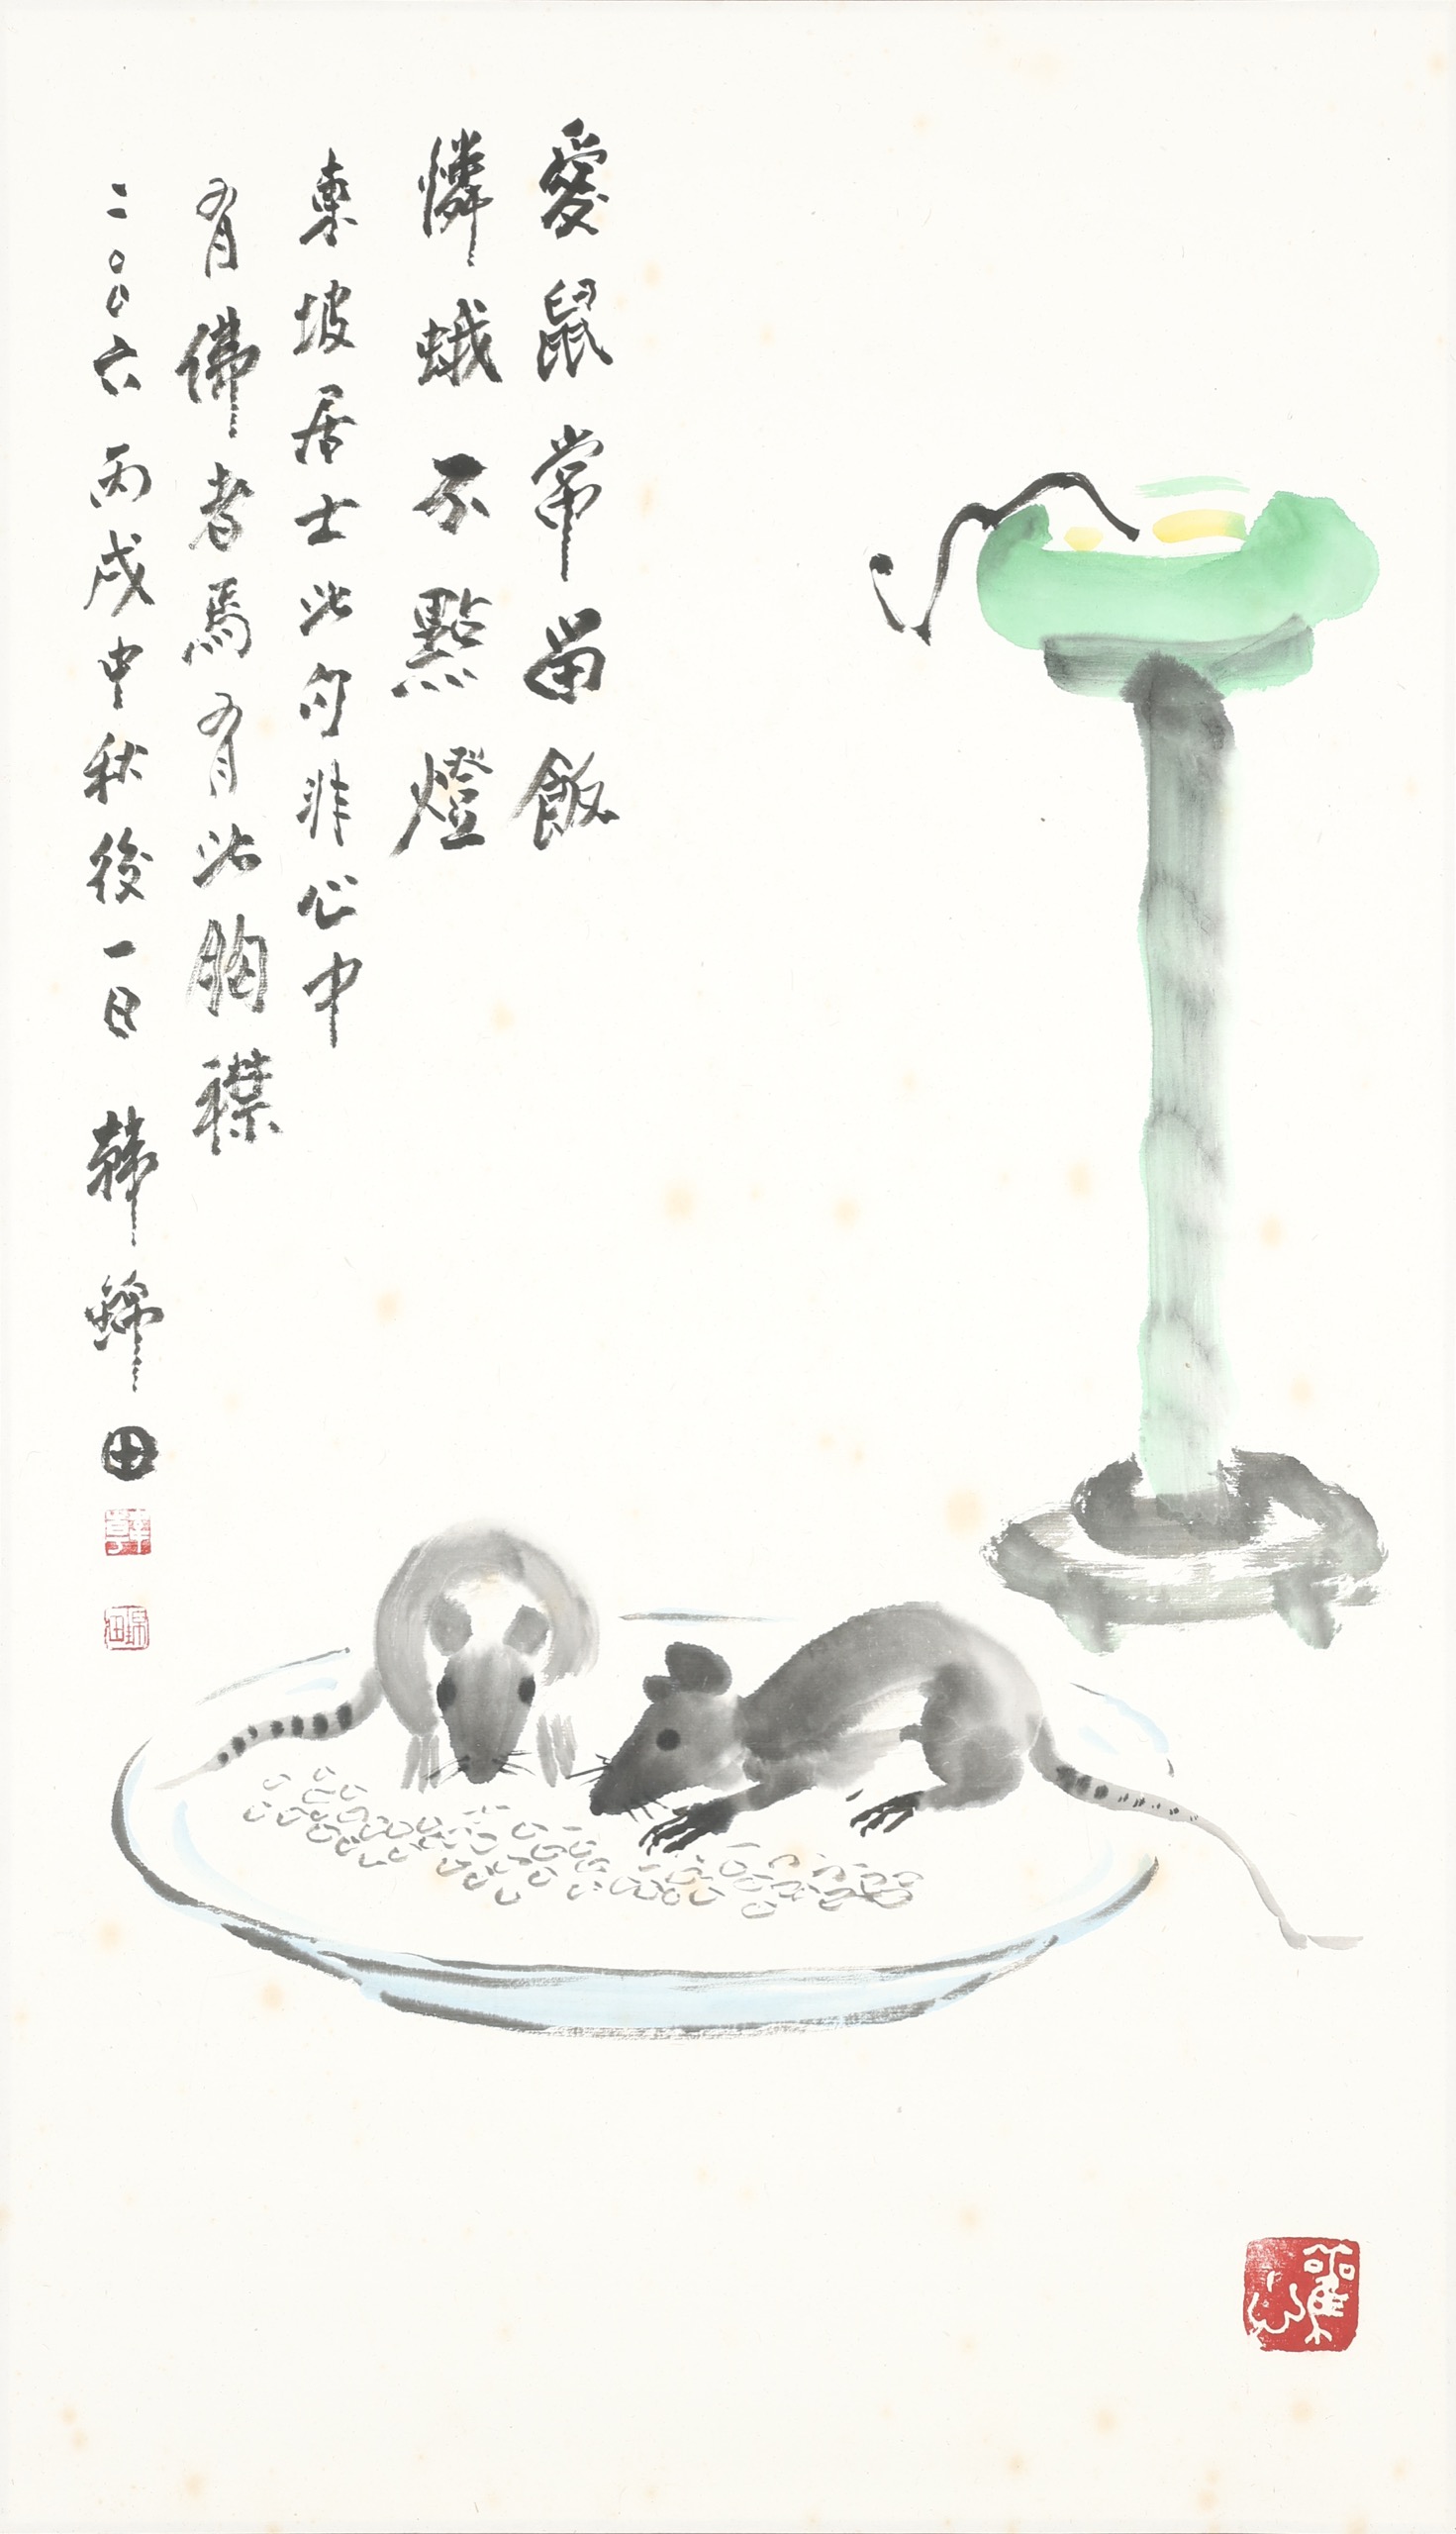 愛鼠常留飯
憐蛾不點燈
東坡居士此句非心中
有佛者焉有此胸襟
二〇〇六丙戌中秋後一日 韓錦田